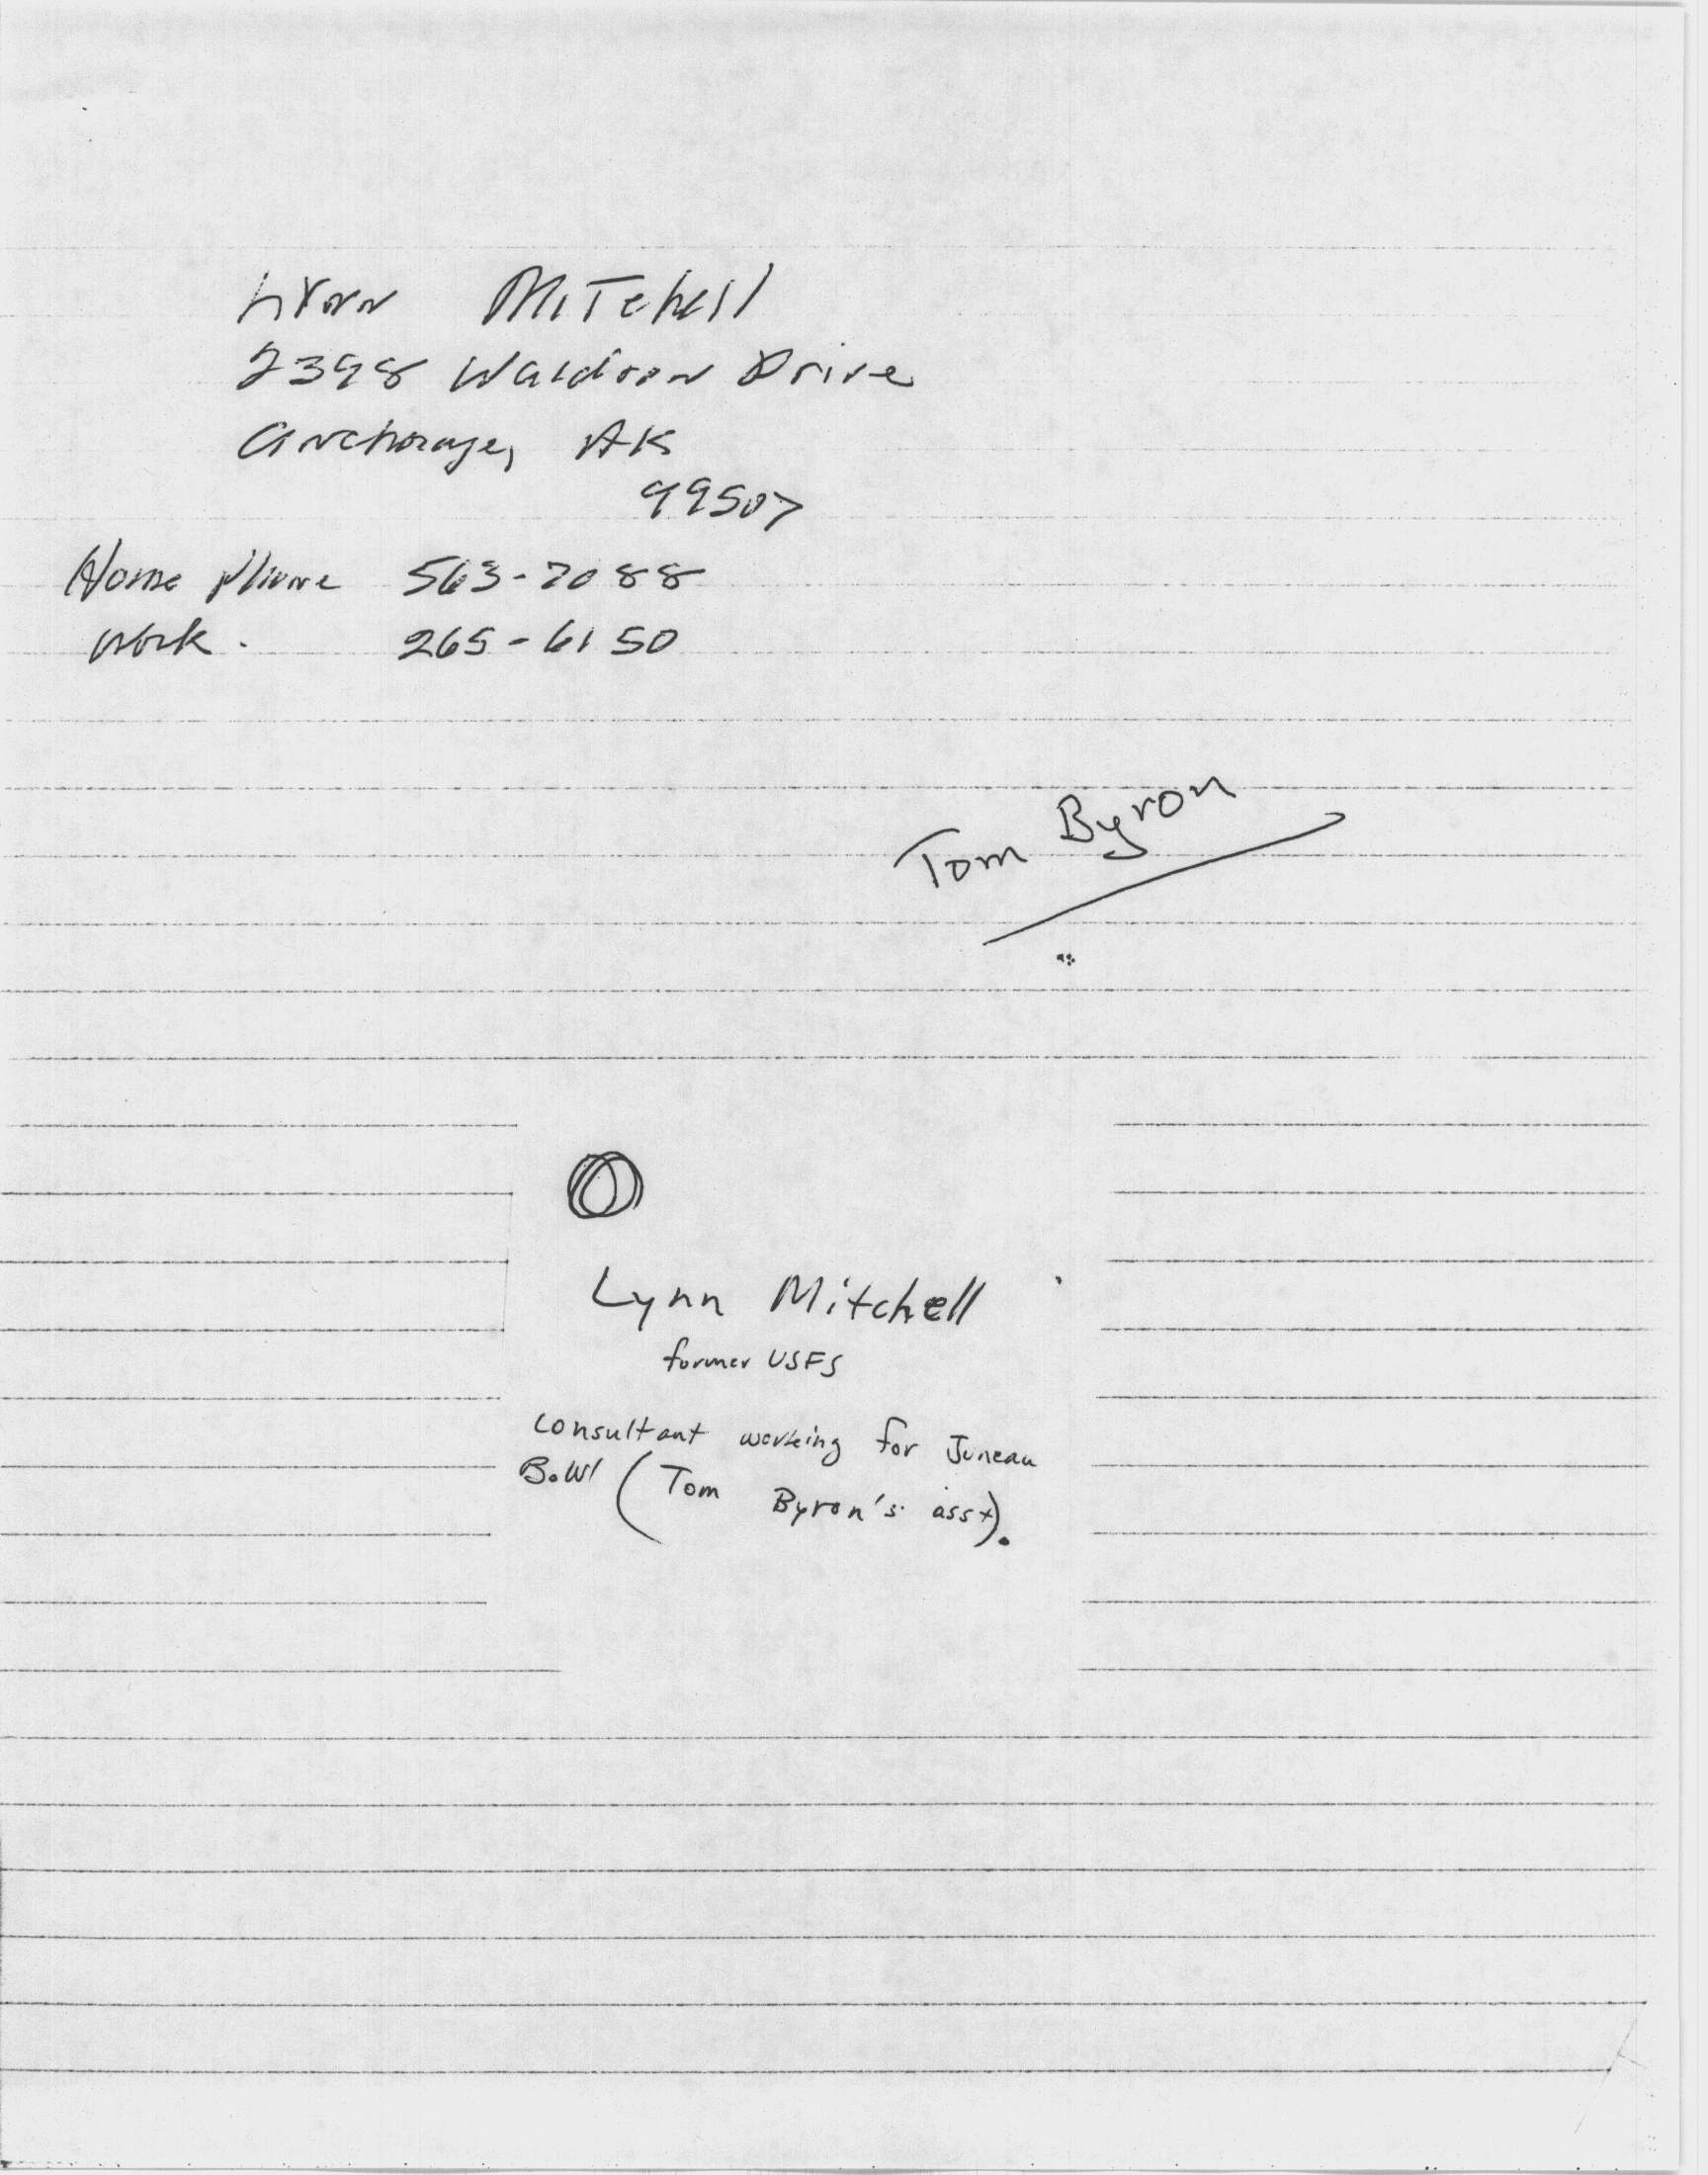 Lynn Mitchell
2398 Waldron Drive
Anchorage, AK
99507
Home Phone 563-7088
Work. 265-6150
Tom Byron
Lynn Mitchell
former USFS
consultant working for Juneau
Bowl (Tom Byron's asst).